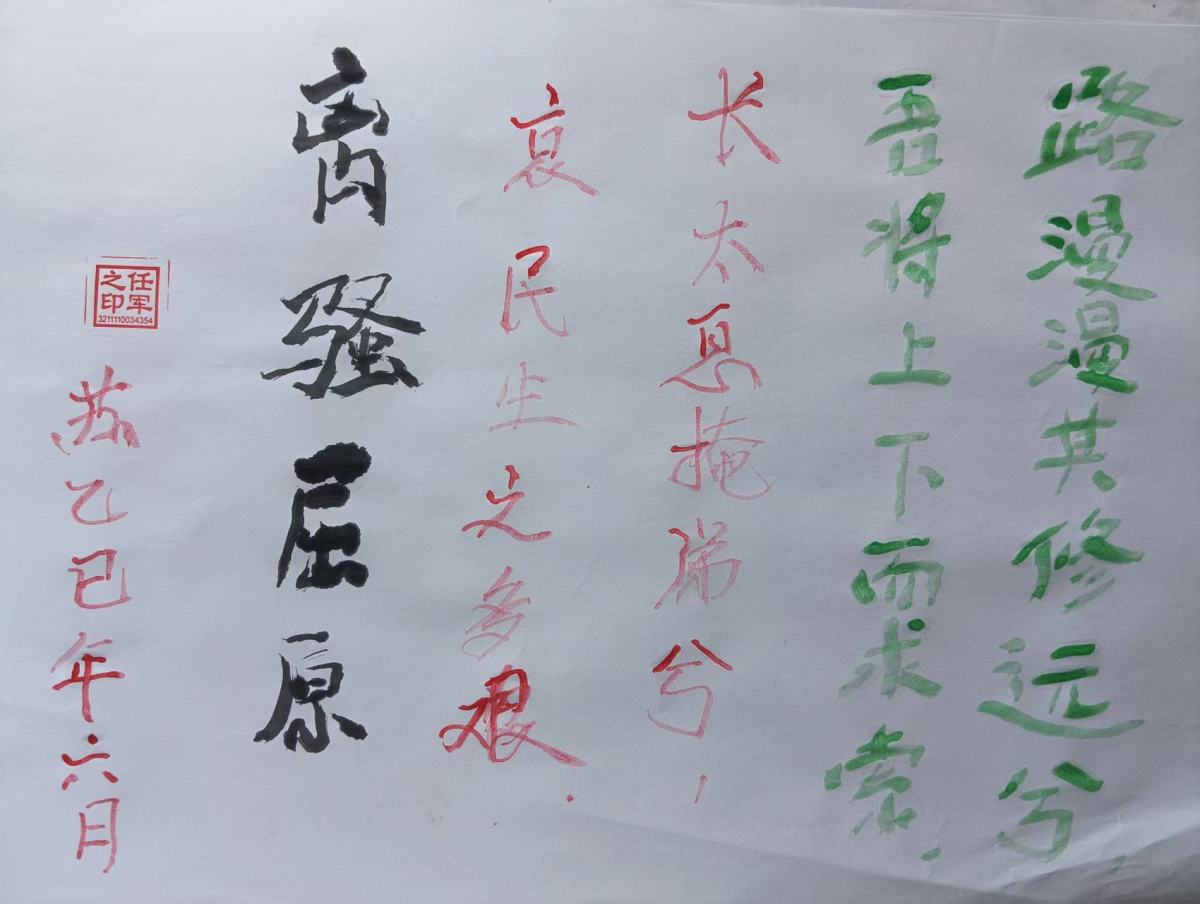 路漫漫其修远兮，
吾将上下而求索．
长太息掩涕兮，
哀民生之多艰．
离骚屈原
任军之印
3211110034354
苏乙巳年六月